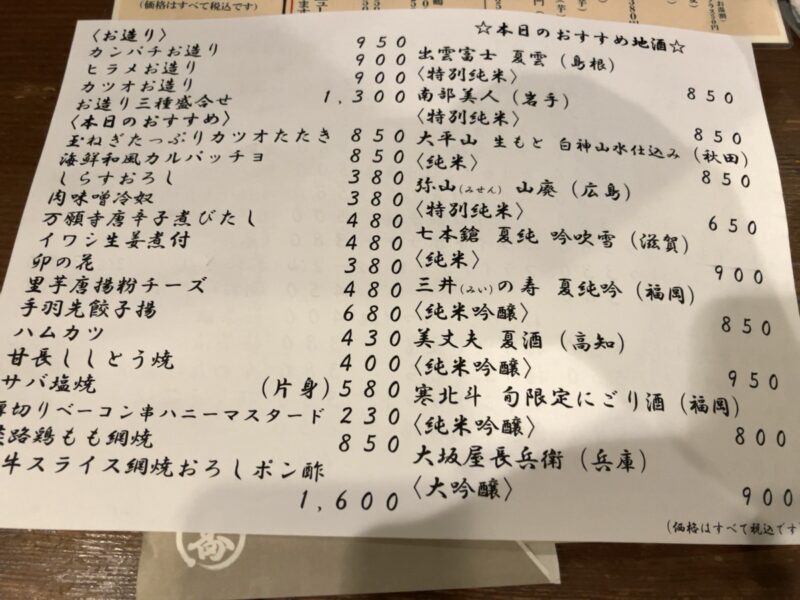 (価格はすべて税込です)
〈お造り〉
カンパチお造り 950
ヒラメお造り 900
カツオお造り 900
お造り三種盛合せ 1,300
〈本日のおすすめ〉
玉ねぎたっぷりカツオたたき 850
海鮮和風カルパッチョ 850
しらすおろし 380
肉味噌冷奴 380
万願寺唐辛子煮びたし 480
イワシ生姜煮付 480
卯の花 380
里芋唐揚粉チーズ 480
手羽先餃子揚 680
ハムカツ 430
甘長ししとう焼 400
サバ塩焼 (片身)580
切りベーコン串ハニーマスタード 230
路鶏もも網焼 850
牛スライス網焼おろしポン酢
1,600
☆本日のおすすめ地酒☆
出雲富士 夏雲 (島根)
〈特別純米〉 850
南部美人 (岩手)
〈特別純米〉 850
大平山 生もと 白神山水仕込み (秋田)
〈純米〉 850
弥山(みせん) 山廃 (広島)
〈特別純米〉 650
七本鎗 夏純 吟吹雪 (滋賀)
〈純米〉 900
三井(みい)の寿 夏純吟 (福岡)
〈純米吟醸〉 850
美丈夫 夏酒 (高知)
〈純米吟醸〉 950
寒北斗 旬限定にごり酒 (福岡)
〈純米吟醸〉 800
大坂屋長兵衛 (兵庫)
〈大吟醸〉 900
(価格はすべて税込です)